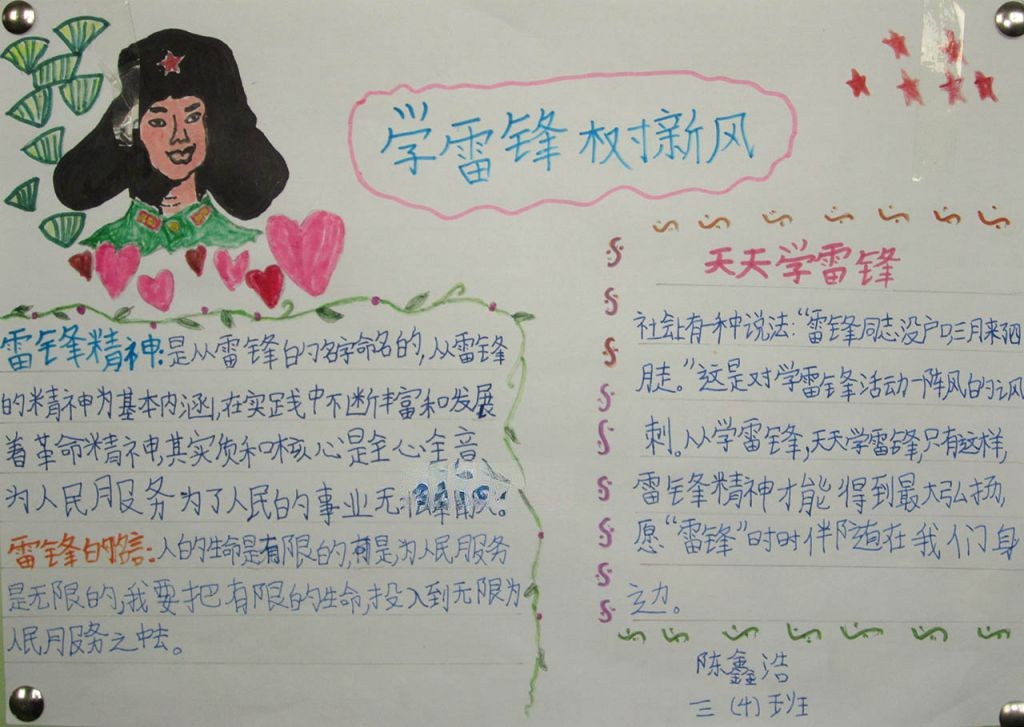 学雷锋树新风
雷锋精神:是从雷锋的名字命名的,从雷锋
的精神为基本内涵,在实践中不断丰富和发展
着革命精神,其实质和核心是全心全音、
为人民服务为了人民的事业无
雷锋的名言:人的生命是有限的,可是,为人民服务
是无限的,我要把有限的生命,投入到无限为
人民服务之中去。
天天学雷锋
社会上有一种说法:“雷锋同志没户口,三月来四
月走。”这是对学雷锋活动一阵风的讽
刺。从学雷锋,天天学雷锋,只有这样,
雷锋精神才能得到最大弘扬,
愿“雷锋”时时伴随在我们身
边。
陈鑫浩
三(4)班